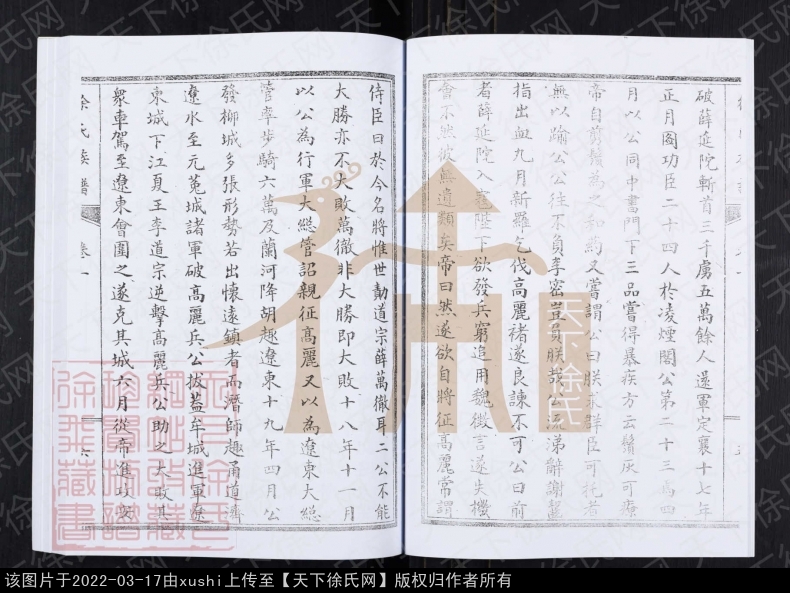 破薛延陀斬首三千虜五萬餘人還軍定襄十七年
正月圖功臣二十四人於凌煙閣公第二十三焉四
月以公同中書門下三品嘗得暴疾方云鬚灰可療
帝自剪鬚為之和藥又嘗謂公曰朕求群臣可托者
無以踰公公往不負李密豈負朕哉公流涕辭謝齧
指出血九月新羅乞伐高麗褚遂良諫不可公曰前
者薛延陀入寇陛下欲發兵窮追用魏徵言遂失機
會不然彼無遺類矣帝曰然遂欲自將征高麗常謂
侍臣曰於今名將惟世勣道宗薛萬徹耳二公不能
大勝亦不大敗萬徹非大勝即大敗十八年十一月
以公為行軍大總管詔親征高麗又以為遼東大總
管率步騎六萬及蘭河降胡趣遼東十九年四月公
發柳城多張形勢若出懷遠鎮者而潛師趣甬道濟
遼水至元菟城諸軍破高麗兵公拔蓋牟城進軍遼
東城下江夏王李道宗逆擊高麗兵公助之大敗其
衆車駕至遼東會圍之遂克其城六月從帝進攻安
徐氏族譜
卷一
六
天下徐氏
天下徐氏网
该图片于2022-03-17由xushi上传至【天下徐氏网】版权归作者所有